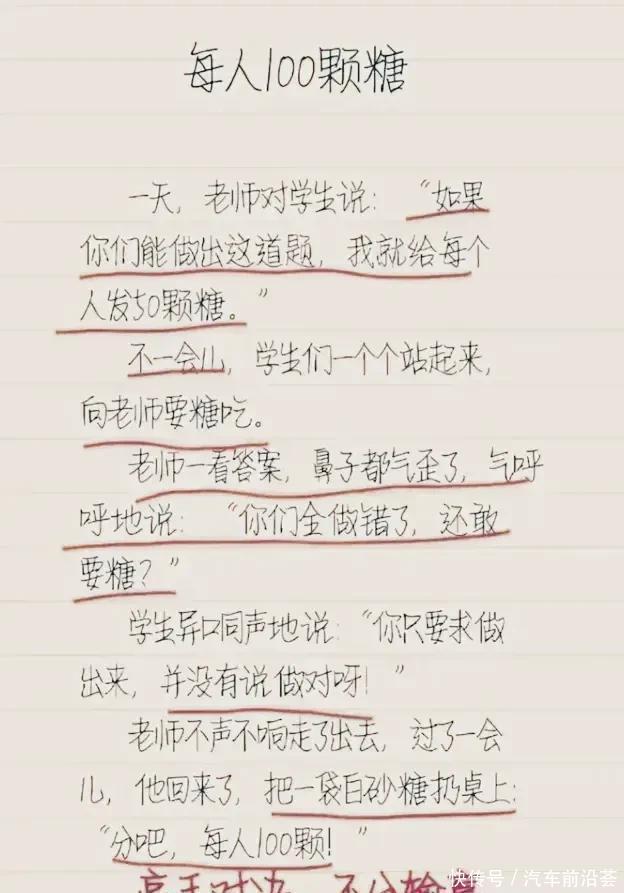 每人100颗糖
一天，老师对学生说：“如果
你们能做出这道题，我就给每个
人发50颗糖。”
不一会儿，学生们一个个站起来，
向老师要糖吃。
老师一看答案，鼻子都气歪了，气呼
呼地说：“你们全做错了，还敢
要糖？”
学生异口同声地说：“你只要求做
出来，并没有说做对呀！”
老师不声不响走了出去，过了一会
儿，他回来了，把一袋白砂糖扔桌上：
“分吧，每人100颗！”
高手对决，不分输赢
快传号 / 汽车前沿荟